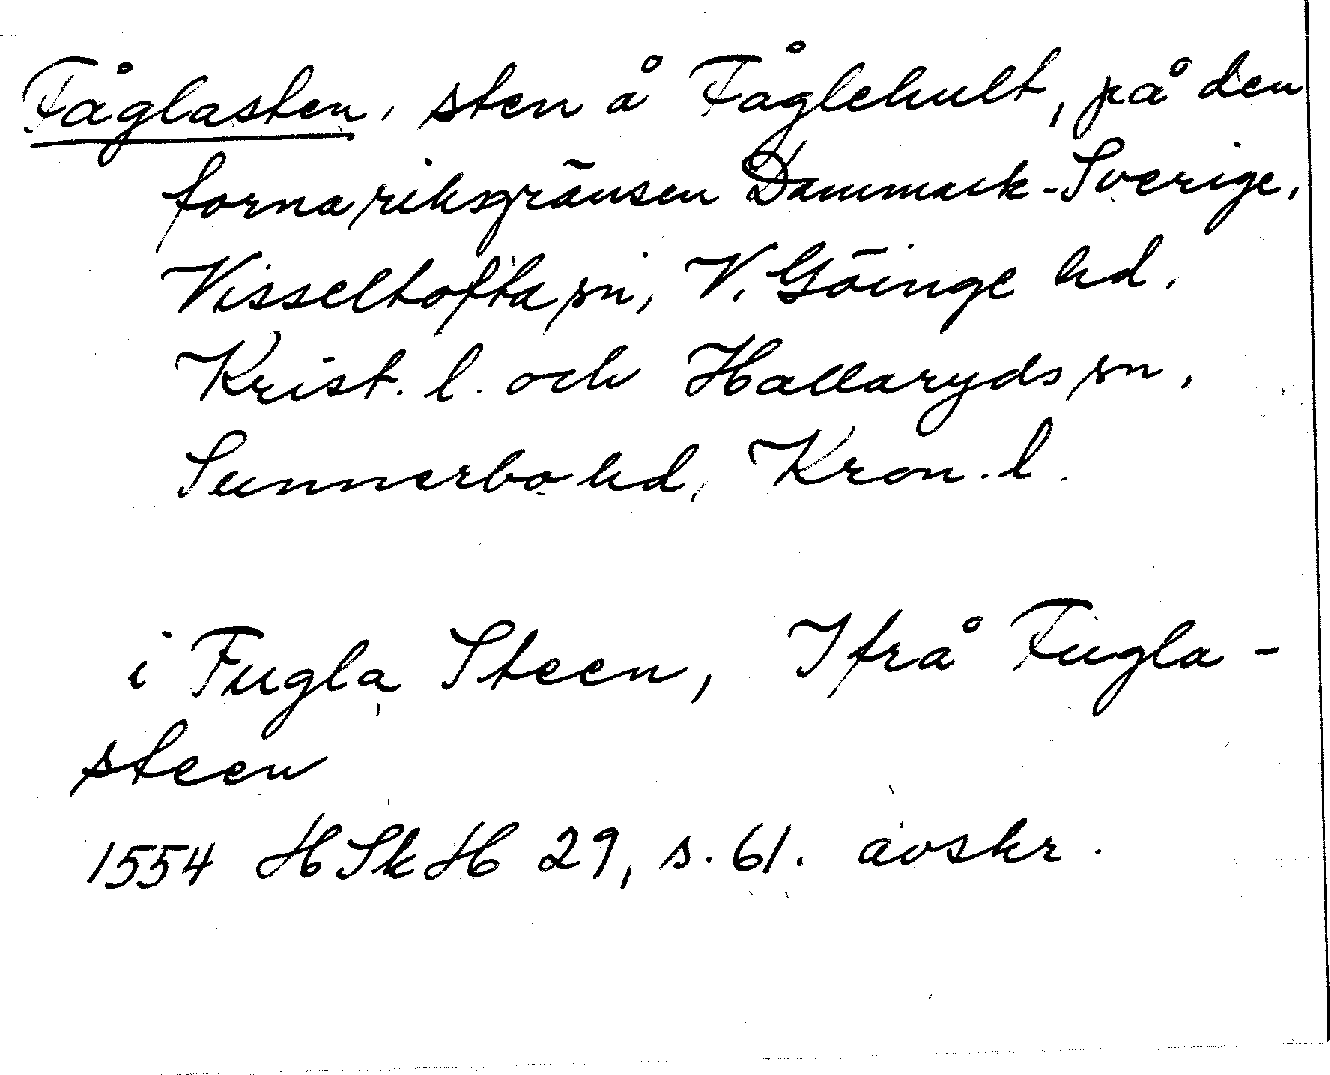 Fåglasten, sten å Fåglehult, på den
forna riksgränsen Danmark-Sverige,
Visseltofta sn, V. Göinge hd,
Krist. l. och Hallaryds sn,
Sunnerbo hd, Kron. l.
i Fugla Steen, Ifrå Fugla-
steen
1554 HSkH 29, s. 61. avskr.